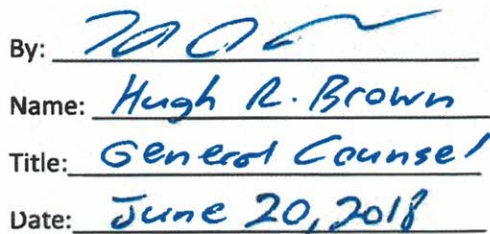 By:
Name: Hugh R. Brown
Title: General Counsel
Date: June 20, 2018